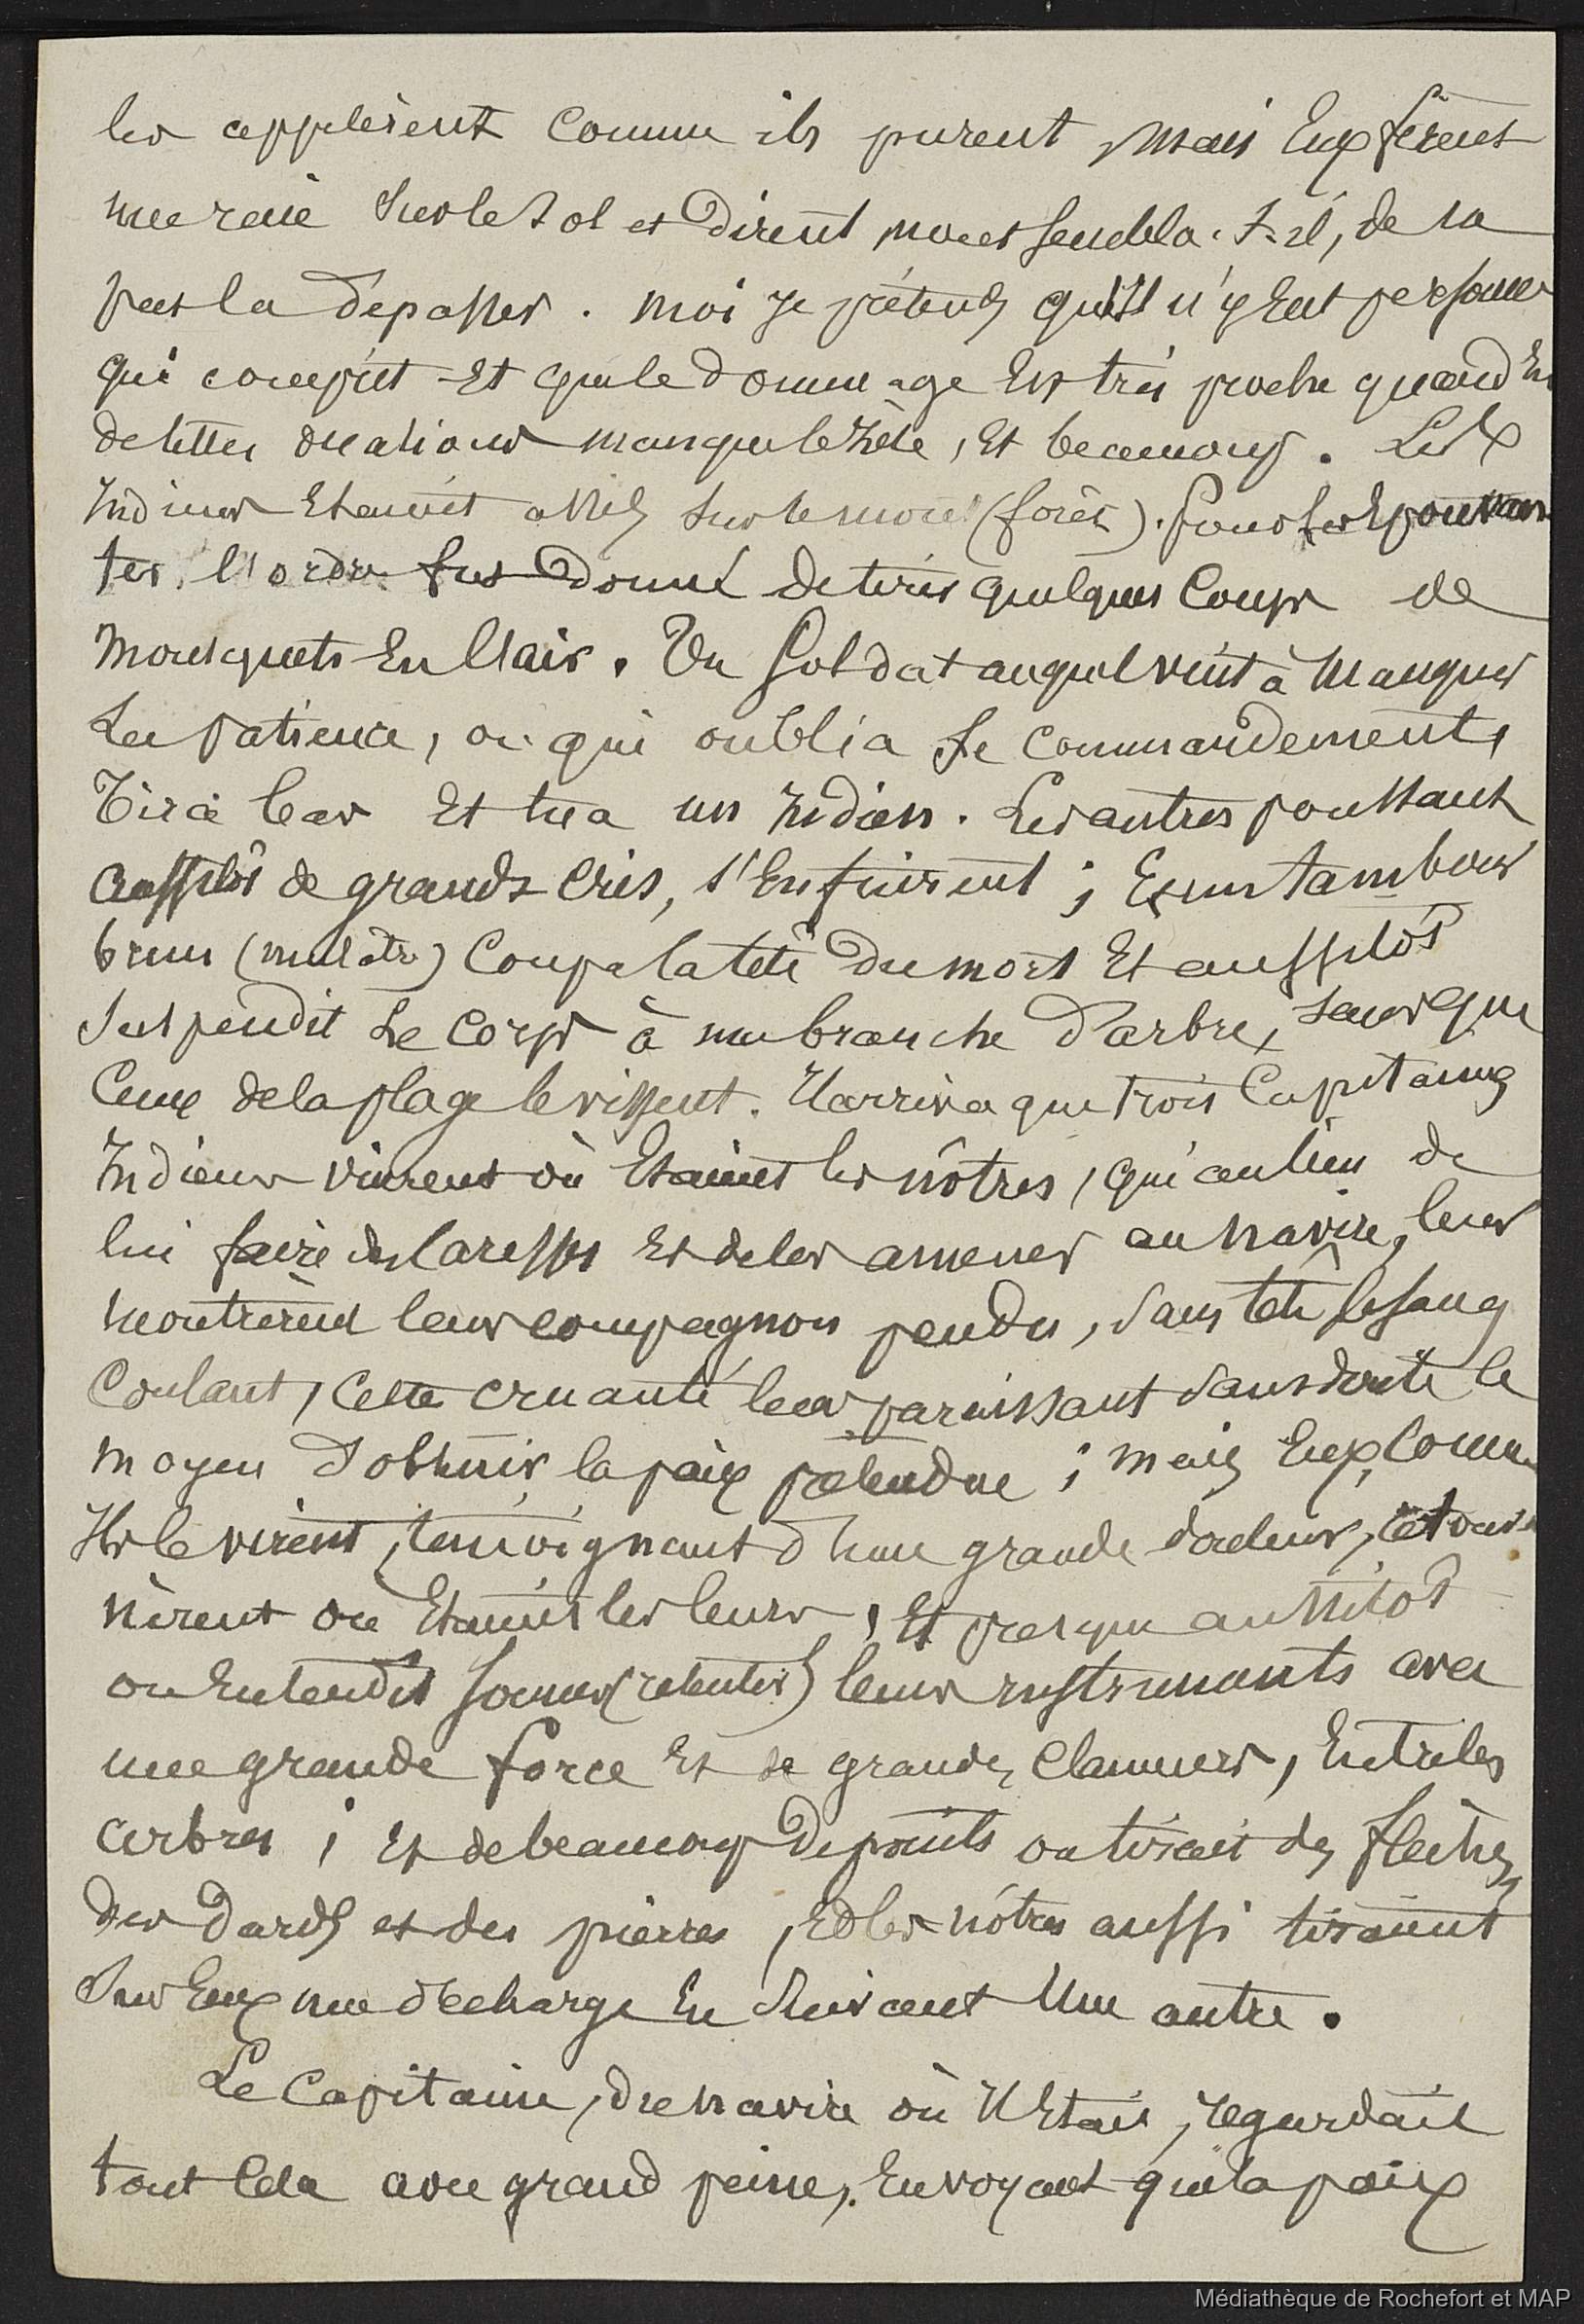 les appelèrent comme ils purent, mais Eux firent
une raie sur le sol et dirent, nous sembla-t-il, de ne
pas la dépasser. moi je prétends qu'il n'y Eut personne
qui comprit Et que le dommage Est très proche quand En
de telles occasions manque le zèle, Et beaucoup. Les
Indiens Etaient assis sur le mont (forêt). Pour les Epouvan
ter, l'ordre fut donné de tirer quelques coups de
mousquets En l'air. Un soldat auquel vint à manquer
La patience, ou qui oublia Le commandement,
Tira bas Et tua un Indien. Les autres poussant
aussitôt de grands cris, s'Enfuirent ; Et un tambour
brun (mulâtre) coupa la tête du mort Et aussitôt
suspendit Le corps à une branche d'arbre, sans que
Ceux de la plage le vissent. Il arriva que trois Capitaines
Indiens vinrent où Etaient les nôtres, qui au lieu de
lui faire des caresses Et de les amener au navire, leur
montrèrent leur compagnon pendu, sans tête, le sang
Coulant, cette cruauté leur paraissant sans doute le
moyen d'obtenir la paix prétendue ; mais Eux, comme
Ils le virent, témoignant d'une grande douleur, retour
nèrent où Etaient les leurs, Et presque aussitôt
on Entendit sonner (retentir) leurs instruments avec
une grande force Et de grandes clameurs, Entre les
arbres ; Et de beaucoup de points on tirait des flèches,
des dards et des pierres, Et les nôtres aussi tiraient
sur Eux une décharge En suivant Une autre.
Le Capitaine, du navire où Il Etait, regardait
tout Cela avec grand peine, En voyant que la paix
Médiathèque de Rochefort et MAP